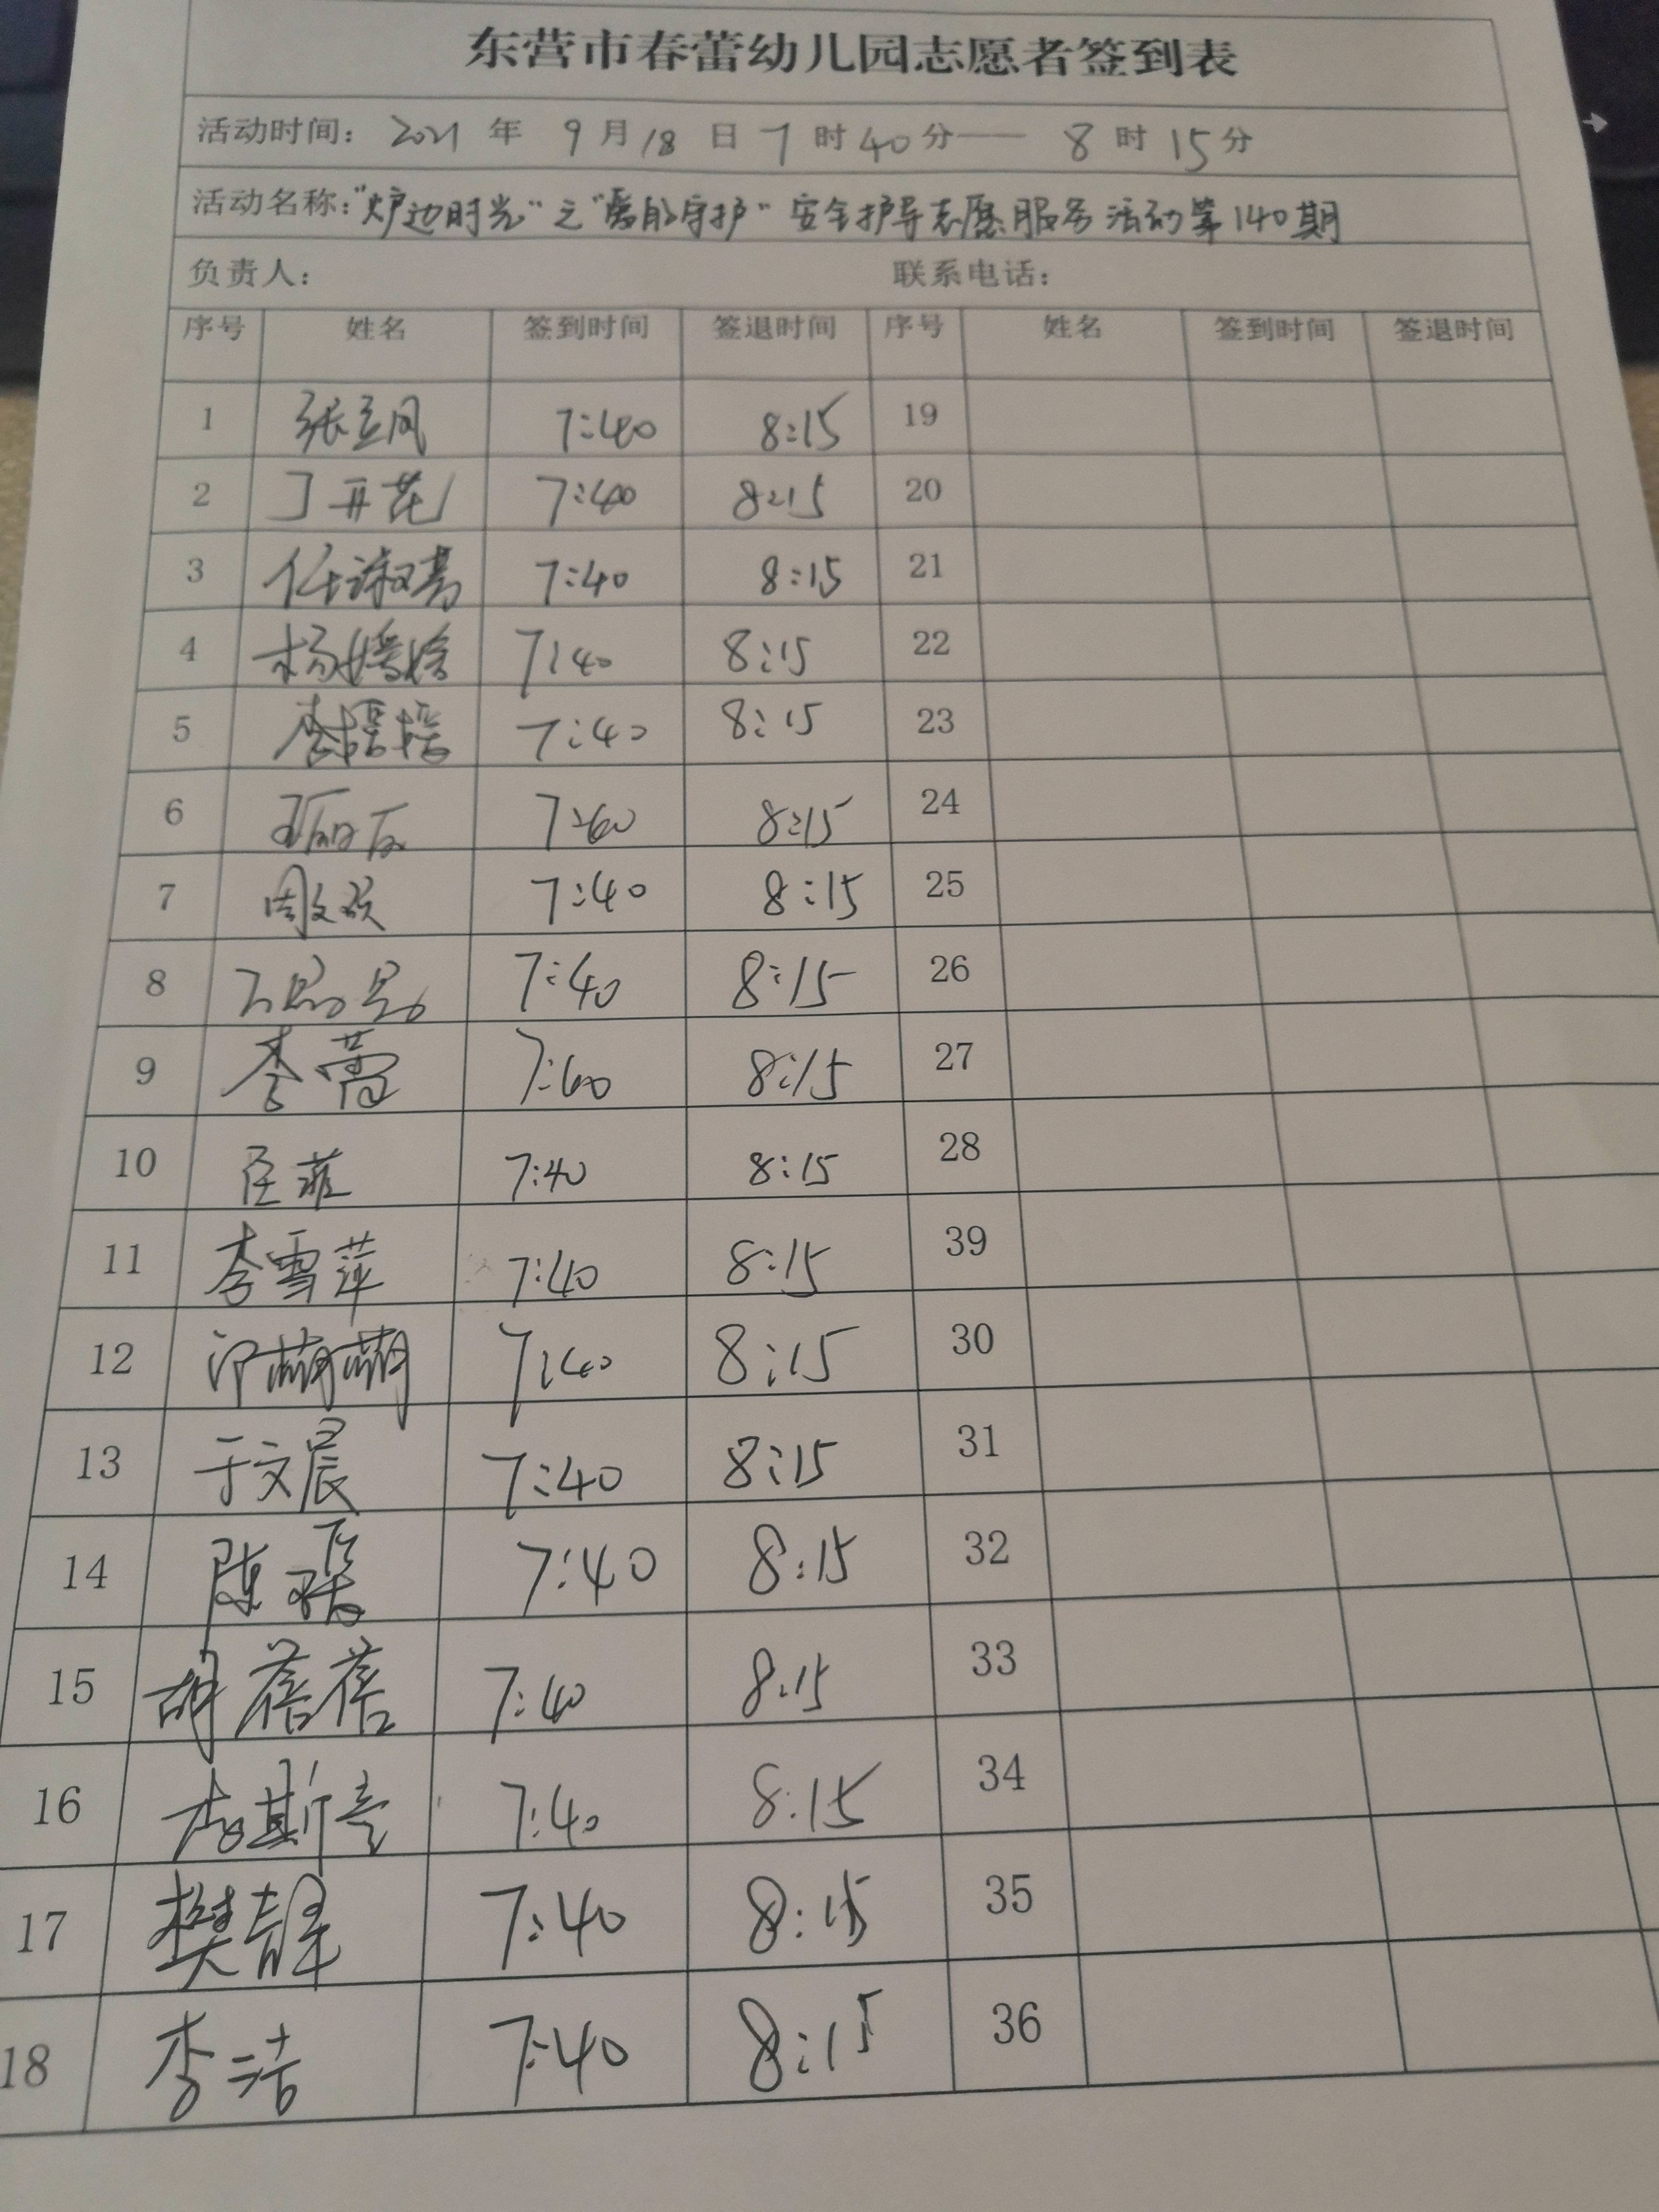 东营市春蕾幼儿园志愿者签到表
活动时间: 2021 年 9 月 18 日 7 时 40 分—— 8 时 15 分
活动名称:"炉边时光"之"爱的守护"安全护导志愿服务活动第140期
负责人: 联系电话:
序号 姓名 签到时间 签退时间 序号 姓名 签到时间 签退时间
1 张立凤 7:40 8:15 19
2 丁开花 7:40 8:15 20
3 任淑 7:40 8:15 21
4 杨婷婷 7:40 8:15 22
5 李瑶瑶 7:40 8:15 23
6 7:40 8:15 24
7 周文 7:40 8:15 25
8 7:40 8:15 26
9 李蕾 7:40 8:15 27
10 菲 7:40 8:15 28
11 李雪萍 7:40 8:15 39
12 萌萌 7:40 8:15 30
13 于文晨 7:40 8:15 31
14 陈 7:40 8:15 32
15 胡蓓蓓 7:40 8:15 33
16 斯 7:40 8:15 34
17 樊静 7:40 8:15 35
18 李洁 7:40 8:15 36